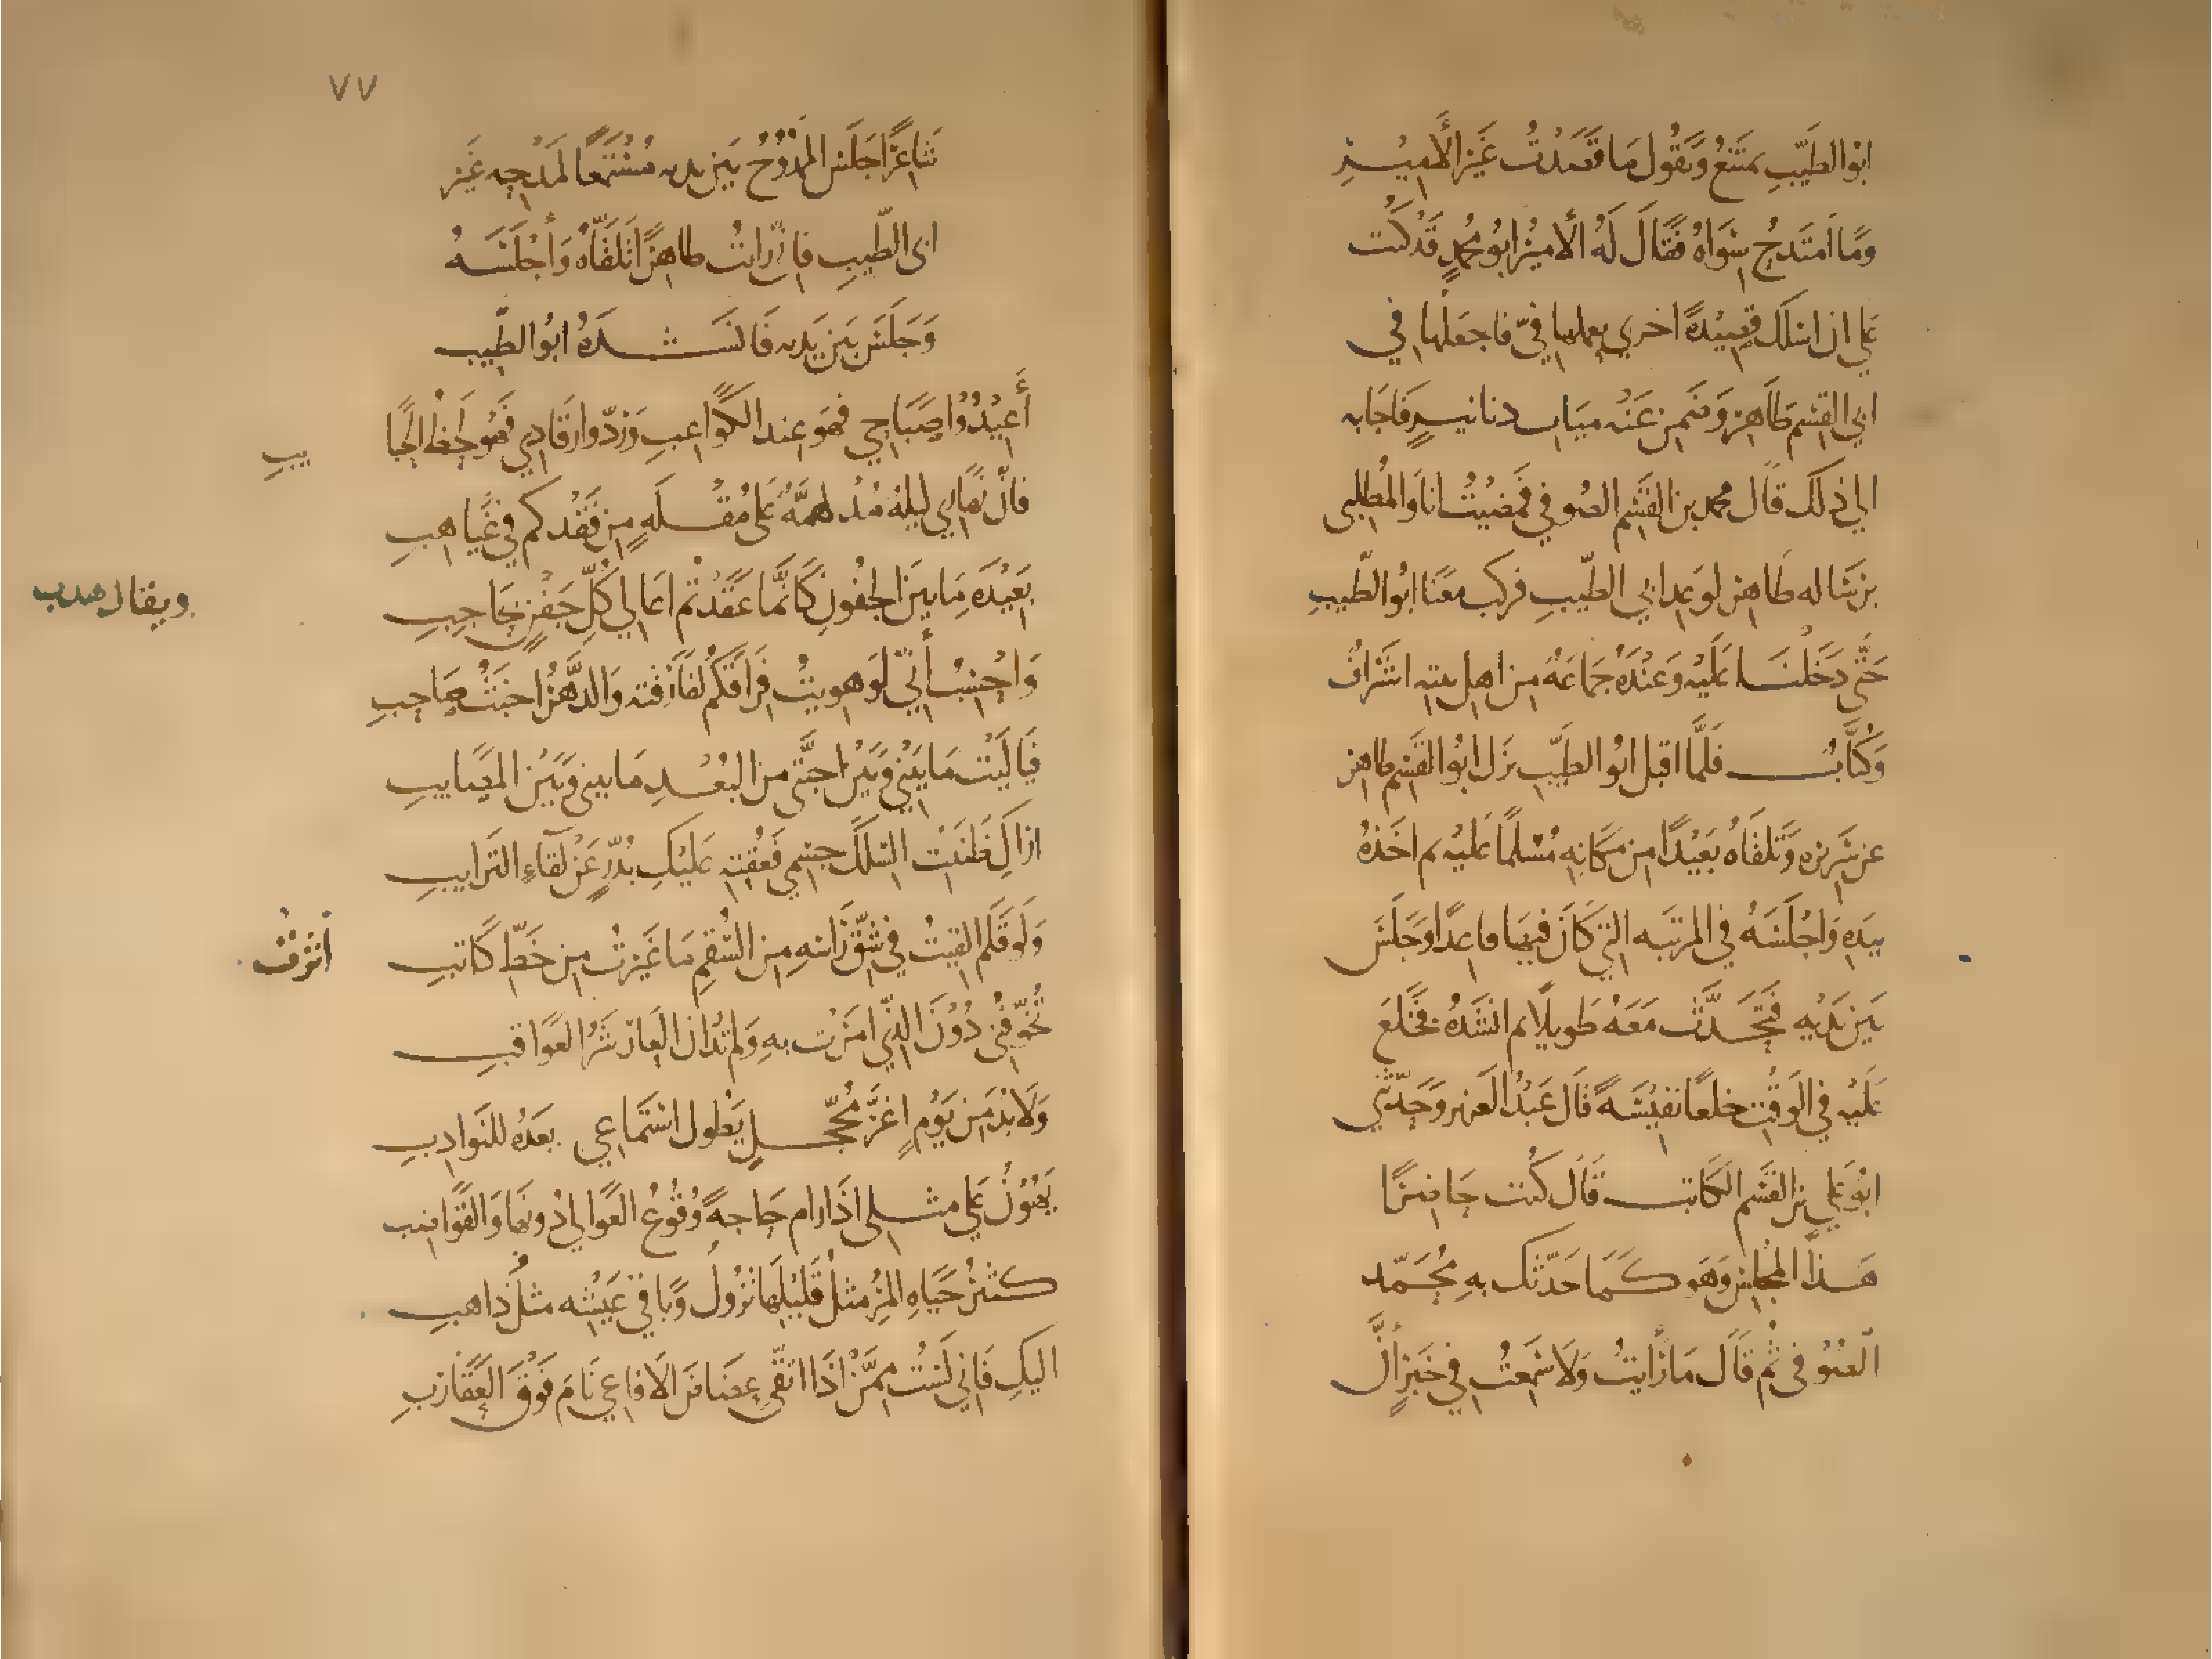 ابُو الطَيّبِ يمتَنعُ وَيَقُول مَا قَصَدتُ غَيرَ الأَميِرِ
ومَا اَمتَدحُ سِوَاهُ فقَال لَهُ الأميرُ ابُو محُمدٍ قَد كنُت
عَلي ان اسلك قصِيْدةً اخري يعملها فيّ فاجعَلها في
ابي القسم طَاهر وَضَمِن عَنْه مِيَات دنانيرٍ فَاجَابه
الي ذلك قَال محمد بن القسَم الصُوفي فمَضيْتُ انا وَالمُطلبي
برسَاله طَاهر لوَعد ابي الطّيبِ فركب معَنَا ابُو الطّيبِ
حَتّى دَخَلْنَا عَلَيْه وَعنْدَهُ جمَاعَةٌ من اهل بيته اشَرَافٌ
وَكُتَّابٌ فَلمَّا اقبل ابُو الطَيّبِ نزَل ابُو القسَم طاهر
عن سَرِيره وَتلقَاهُ بَعيْدًا من مَكَانِهِ مُسْلمًا عَليْه ثم اخَذهُ
بيَدِه وَاجْلَسَهُ في المرتبَه التي كَانَ فيهَا قاعدًا وَجَلسَ
بَين يَديْهِ فَتَحَدَّثَ مَعَهُ طَويلًا ثم انشَدهُ فخَلَعَ
عَليْه في الوَقْتِ خلعًا نفيْسَةً قَال عَبْدُ العَزيز وَحَدّثَني
ابُو عَلي بن القسَم الكَاتب قَال كُنت حَاضِرًا
هَذا المجْلِس وَهَو كَمَا حَدّثَك بهِ مُحَمّد
الصُوفي ثم قَالَ مَا رَأيتُ وَلَا سَمعْتُ في خَبَرٍ أنّ
٧٧
شَاعرًا جَلَسَ المَمدُوْحُ بَين يديه مُسْتَمعًا لمَدْحِهِ غَير
ابى الطّيبِ فاني رَايتُ طَاهرًا تَلقّاهُ وَأجْلَسَهُ
وَجَلسَ بَين يَديْه فَانشَدَهُ ابُو الطّيب
أَعيْدُوا صَبَاحِي فهوَ عند الكَواعبِ وَرُدّوا رقَادِي فهُو لَحظُ الحَبا
يبِ
فانّ نهَاري ليلةٌ مُدْلهمَّةٌ عَلى مُقْلَةٍ مِن فَقْدكم في غيَاهبِ
بَعيْدَة مَا بينَ الجفُونِ كَانّمَا عَقَدْتم اعَالي كُلّ جَفْنٍ بحَاجِبِ
ويقال هدب
وَاحْسِبُ أَنّي لَو هَويتُ فرَاقكم لفَارَقته وَالدّهْرُ اخبَثُ صَاحبِ
فيَا ليْتَ مَا بيْني وَبينَ احبّتي من البُعْدِ مَا بيني وَبَينَ المصَايبِ
اراكِ ظَننْتِ السّلك جسْمي فعُقتِه عَليْكِ بدُرٍّ عَنْ لقَاءِ التَرَايبِ
وَلَو قَلم القيتُ في شَقّ رَاسِهِ من السُقمِ مَا غيَرتُ من خَطّ كَاتبِ
اثرتُ
تُخَوّفُني دُوْنَ الذي امَرَت بهِ وَلم تَدْرِ ان العَارَ شَرُّ العَوَاقبِ
وَلابُدَّ من يَوْمٍ اغَرَّ مُحَجّلٍ يَطُول استمَاعي بعدَهُ للنَوادِبِ
يَهُوْنُ عَلي مثلي اذَا رَام حَاجةً وُقُوعُ العَوَالي دُونهَا وَالقَوَاضبِ
كثيرُ حَيَاةِ المَرْءِ مثلُ قَليْلهَا يزُولُ وَبَاقي عَيْشِه مثلُ ذاهبِ
اليكِ فَاني لَسْتُ ممّنْ اذَا اتقى عِضَاضَ الافاعي نَامَ فَوْقَ العَقَارِبِ